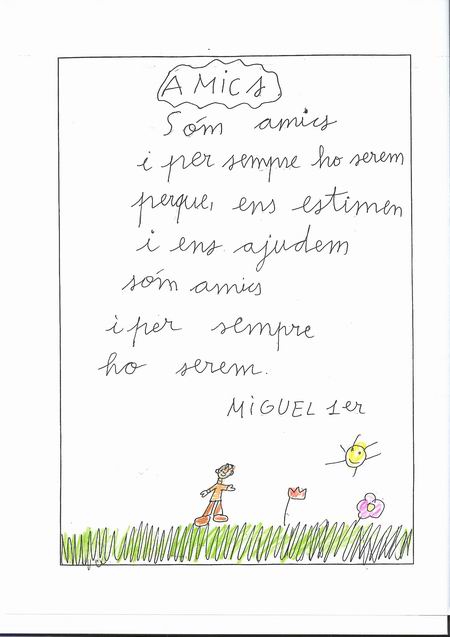 AMICS
Sóm amics
i per sempre ho serem
perque, ens estimen
i ens ajudem
sóm amics
i per sempre
ho serem.
MIGUEL 1er